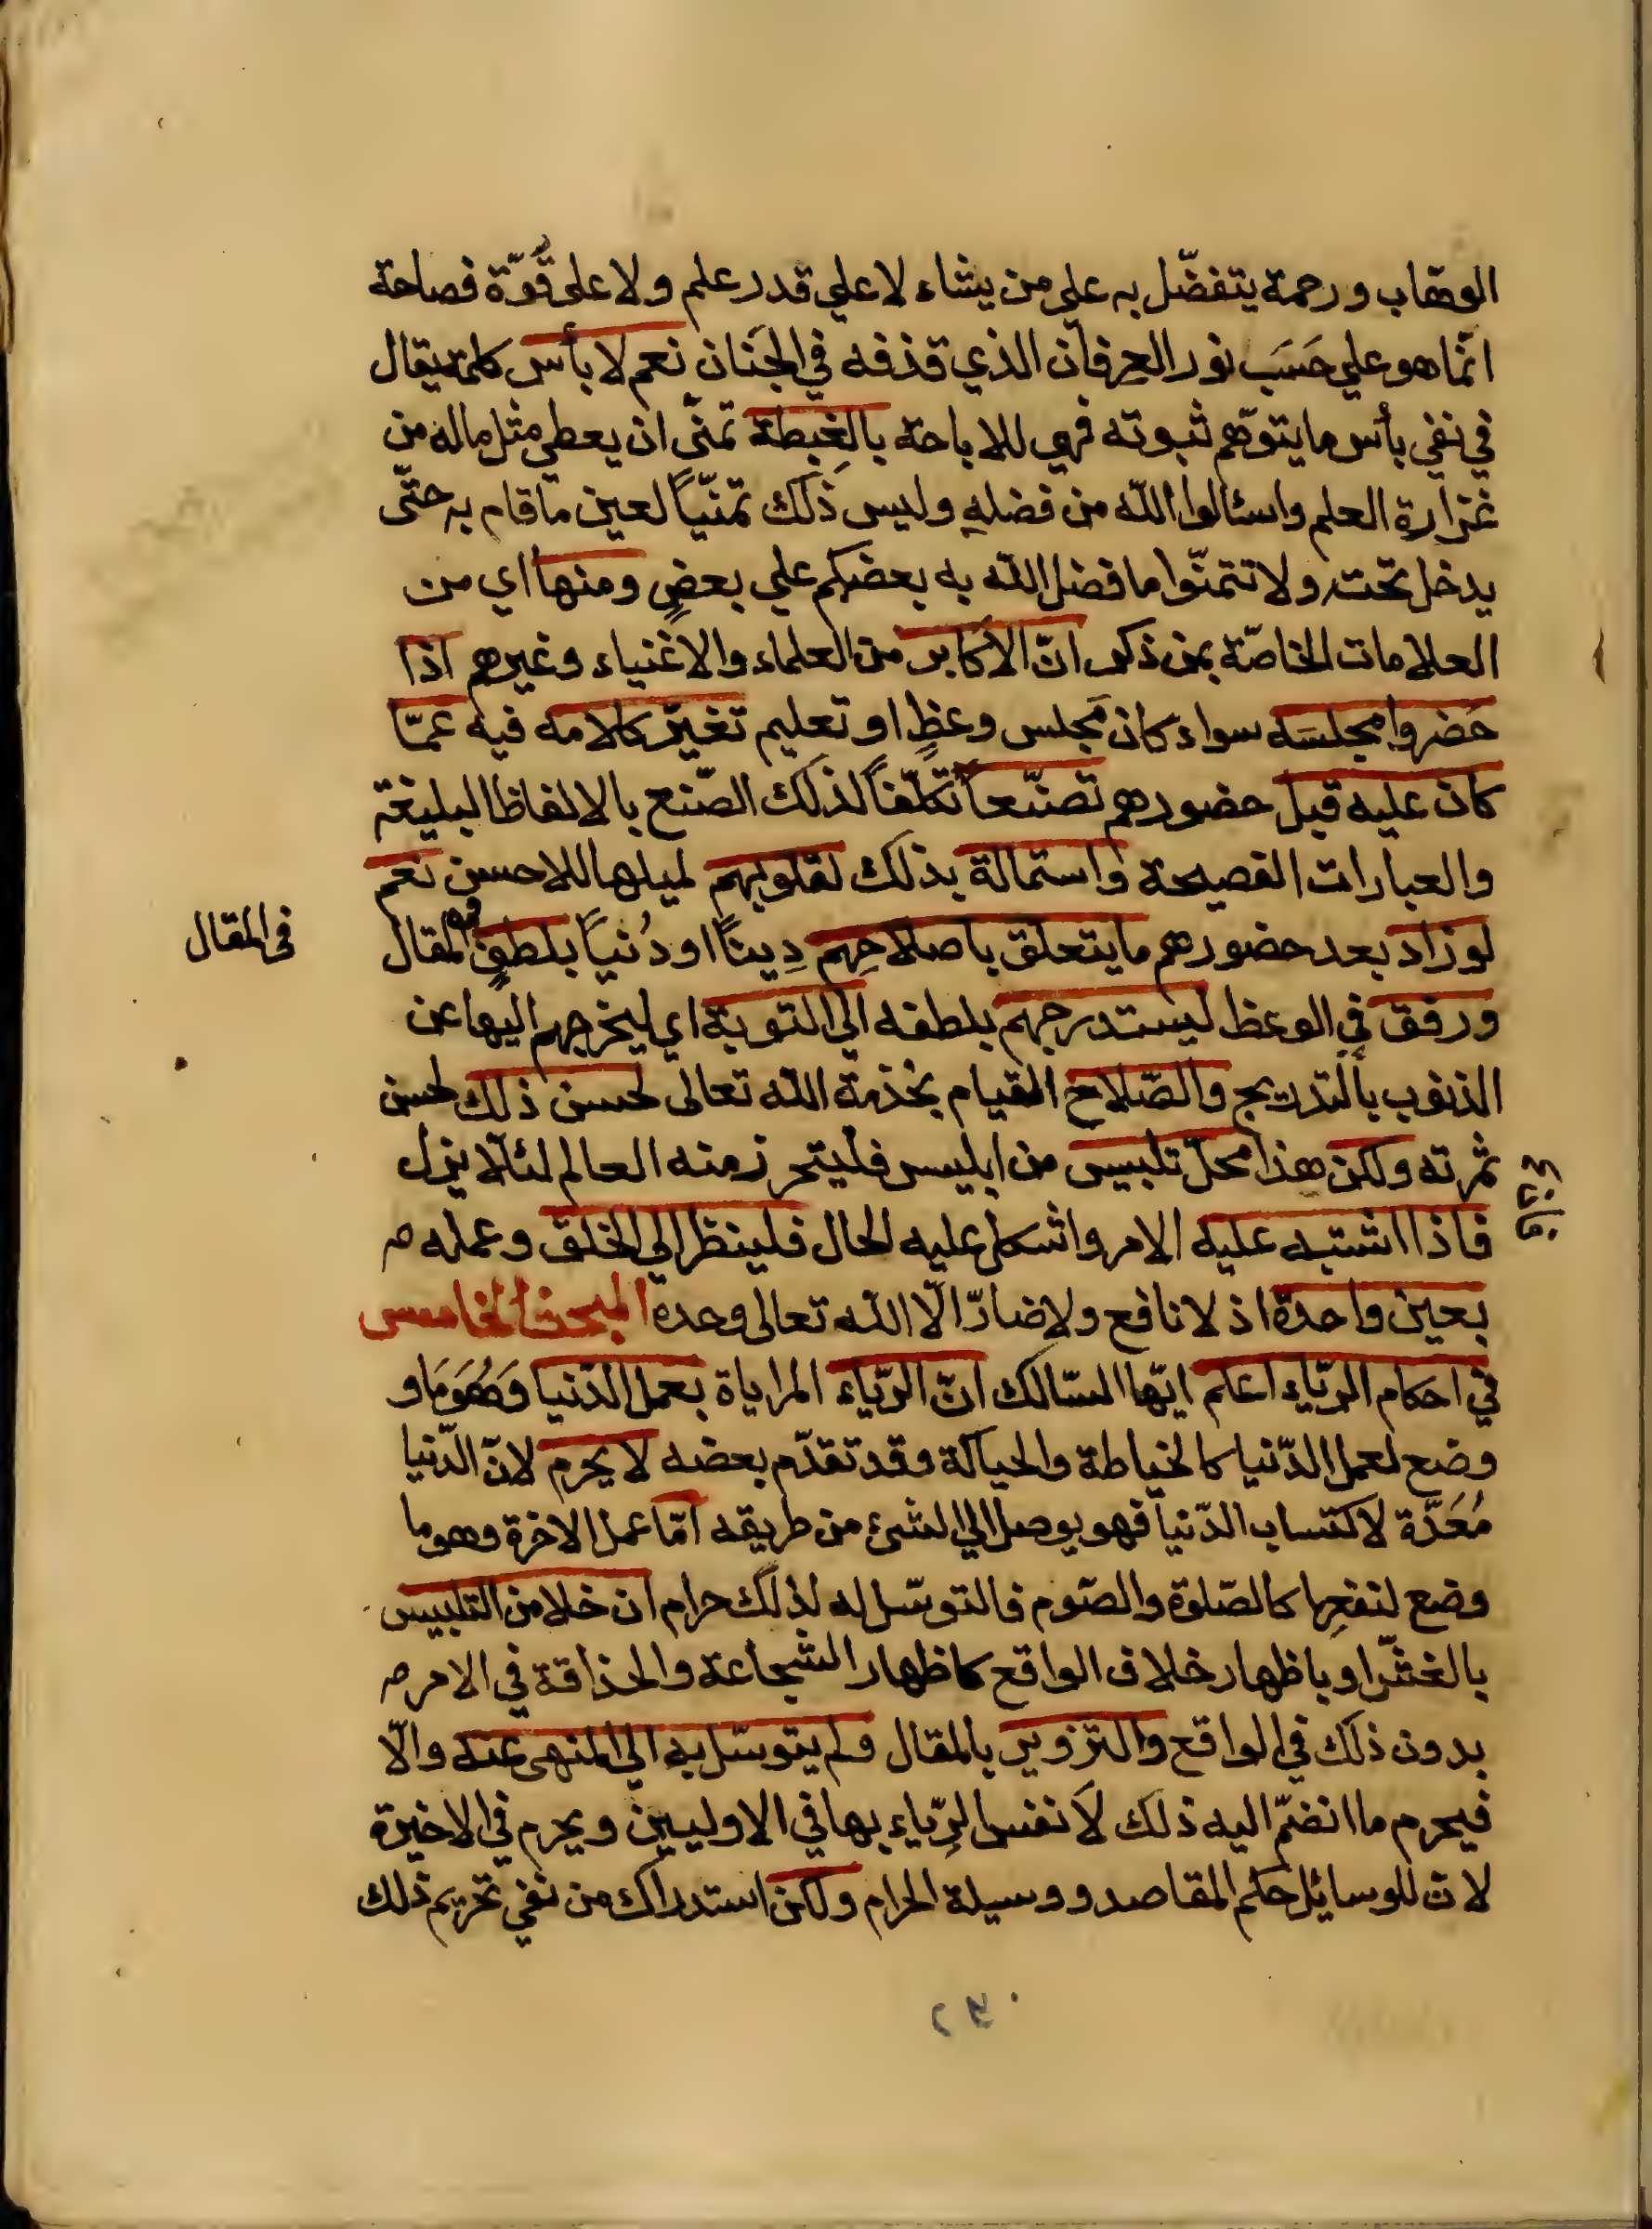 الوهّاب ورحمة يتفضّل به على من يشاء لا علي قدر علم ولا على قُوّة فصاحة
انّما هو علي حَسَب نور العرفان الذي قذفه في الجَنان نعم لا بأس كلمة يقال
في نفي بأس ما يتوهّم ثبوته فهي للاباحة بالغِبطة تمنّى ان يعطى مثل ماله من
غزارة العلم واسئالوا الله من فضلهِ وليس ذلك تمنّياً لعين ما قام به حتّى
يدخل تحت ولا تتمنّوا ما فضل الله به بعضكم علي بعضٍ ومنها اي من
العلامات الخاصّة بمن ذكر انّ الاكابر من العلماء والاغنياء وغيرهم اذا
حَضروا مجلسَه سواء كان مجلس وعظٍ او تعليم تغيّر كلامه فيه عمّا
كان عليه قبل حضورهم تصنّعاً تكلّفاً لذلك الصّنع بالالفاظ البليغة
والعبارات الفصيحة واستمالة بذلك لقلوبهم لميلها للاحسن نعم
لو زاد بعد حضورهم ما يتعلق باصلاحِهِم دِيناً او دُنياً بلطفٍ في المقال
في المقال
ورفق في الوعظ ليستدرجهم بلطفه الي التوبة اي ليخرجهم اليها عن
الذنوب بالتدريج والصّلاح القيام بخذمة الله تعالى لحسن ذلك لحسن
ثمرته ولكن هذا محلّ تلبيس من ابليس فليتحرز منه العالم لئلّا يزل
فاذا اشتبه عليه الامر واشكل عليه الحال فلينظر الي الخلق وعمله م
بعين واحدة اذ لا نافع ولا ضارّ الّا الله تعالى وحده المبحث الخامس
في احكام الريّاء اعلم ايّها السّالك انّ الرّياء المراياة بعمل الدّنيا وَهُوَ مَا و
وضع لعمل الدّنيا كالخياطة والحياكة وقد تقدّم بعضه لا يحرم لانّ الدّنيا
مُعَدّة لاكتساب الدّنيا فهو يوصل الي الشئ من طريقه امّا عمل الاخرة وهو ما
وضع لنفعِها كالصّلوة والصّوم فالتوسّل له لذلك حرام ان خلا من التلبيس
بالغشّ او باظهار خلاف الواقع كاظهار الشجاعة والحذاقة في الامر م
بدون ذلك في الواقع والتزوير بالمقال ولم يتوسّل به الي المنهى عنه والّا
فيحرم ما انضمّ اليه ذلك لَا نفس الرّياء بها في الاوليين ويحرم في الاخيرة
لان للوسائل حكم المقاصد ووسيلة الحرام ولكن استدراك من نفي تحريم ذلك